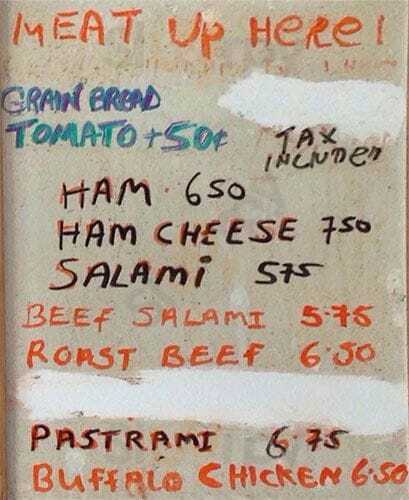 MEAT UP HeRe!
GRAIN BREAD
TOMATO +50¢
TAX
INCLUDED
HAM 650
HAM CHEESE 750
SALAMi 575
BEEF SALAMI 5.75
ROAST BEEF 6.50
PASTRAMI 6.75
BUFFALO CHICKEN 6.50